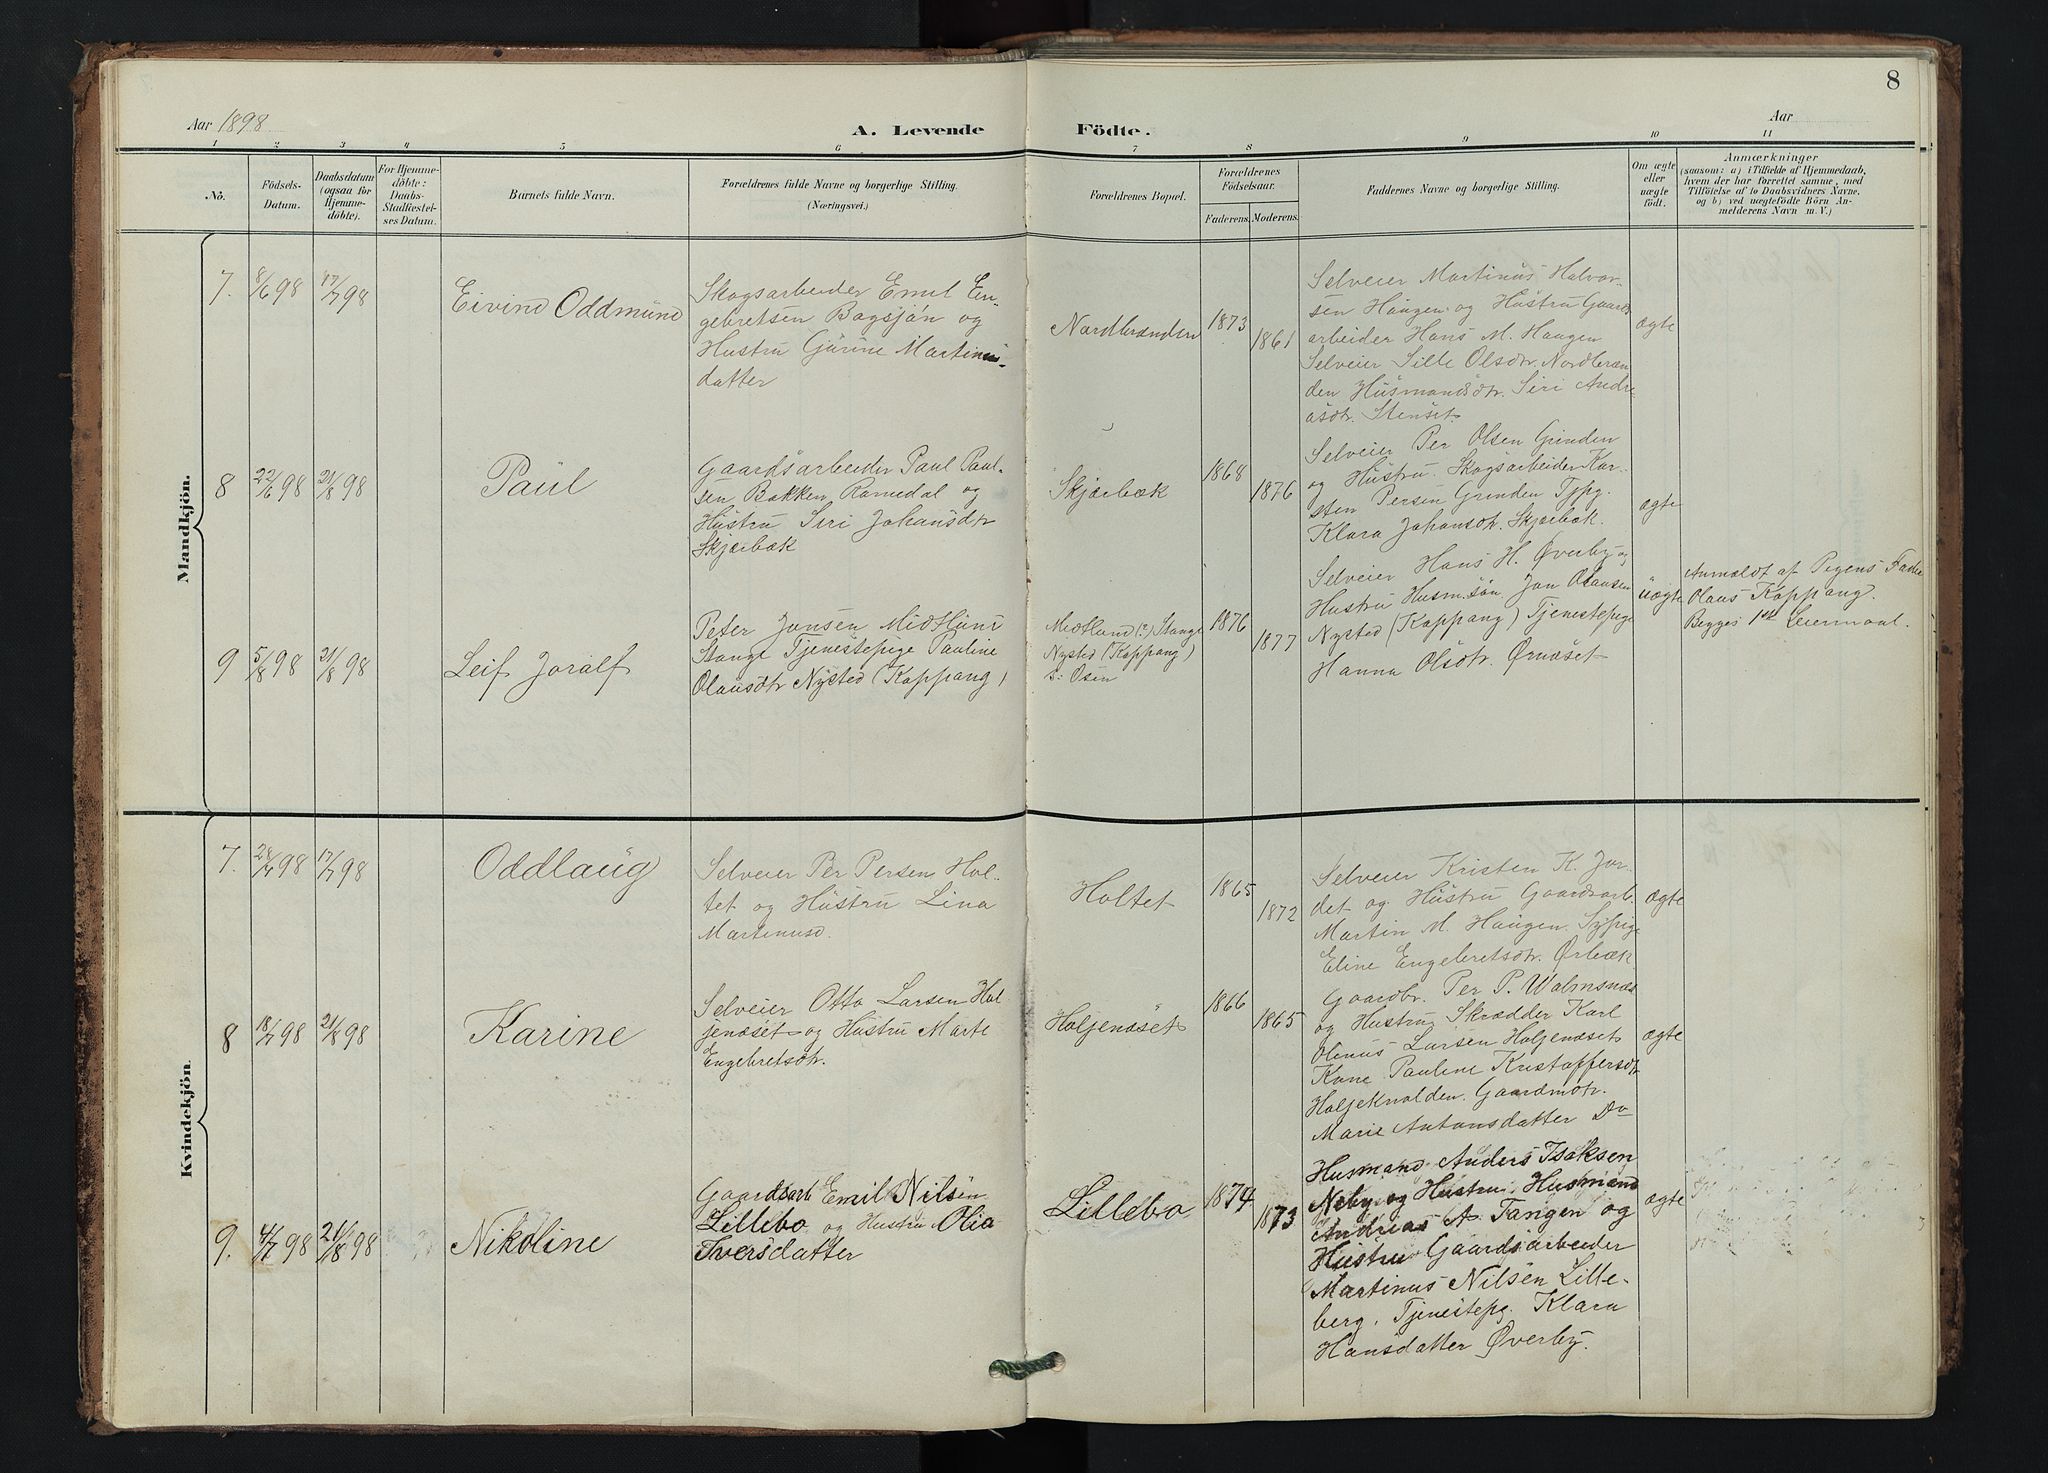 8
Aar 1898
A. Levende
Födte.
Aar
1 2 3 4 5 6 7 8 9 10 11
No.
Födsels-
Datum.
Daabsdatum
(ogsaa for
Hjemme-
döbte).
For Hjemme-
döbte:
Daabs-
Stadfæstel-
ses Datum.
Barnets fulde Navn.
Forældrenes fulde Navne og borgerlige Stilling.
(Næringsvei.)
Forældrenes Bopæl.
Forældrenes
Födselsaar.
Faderens. Moderens.
Faddernes Navne og borgerlige Stilling.
Om ægte
eller
uægte
födt.
Anmærkninger
(saasom: a) i Tilfælde af Hjemmedaab,
hvem der har forrettet samme, med
Tilföielse af to Daabsvidners Navne,
og b) ved uægtefödte Börn An-
melderens Navn m. V.)
Mandkjön.
7. 8/6 98 17/7 98
Eivind Oddmund
Skogsarbeider Emil En-
gebretsen Bagsjön og
Hustru Gurine Martinus-
datter
Nordbrænden
1873
1861
Selveier Martinus Halvor-
sen Haugen og Hustru Gaards
arbeider Hans M. Haugen
Selveier Sille Olsdtr. Nordbræn
den Husmandsdtr. Siri Andre
asdtr. Stenset.
ægte
8 22/6 98 21/8 98
Paul
Gaardsarbeider Paul Paul-
sen Bakken Romedal og
Hustru Siri Johansdtr
Skjærbæk
Skjærbæk
1868
1876
Selveier Per Olsen Grinden
og Hustru. Skogsarbeider Kar-
sten Persen Grinden Tjpg.
Klara Johansdtr. Skjærbæk.
ægte
9 5/8 98 21/8 98
Leif Joralf
Peter Jansen Midtlund
Stange Tjenestepige Pauline
Olausdtr Nysted (Koppang)
Midtlund (?) Stange
Nysted (Koppang)
s: Osen
1876
1877
Selveier Hans H. Øverby og
Hustru Husm.søn Jon Olausen
Nysted (Koppang) Tjenestepige
Hanna Olsdtr. Ørnæset
uægte
Anmeldt af Pigens Fader
Olaus Koppang.
Begges 1ste Leiermaal.
Kvindekjön.
7. 98 17/7 98
Oddlaug
Selveier Per Persen Hol-
tet og Hustru Lina
Martinusd.
Holtet
1865
1872
Selveier Kristen K. Jor-
det og Hustru Gaardsarb.
Martin M. Haugen. Sypige
Eline Engebretsdtr. Ørbæk
ægte
8 18/7 98 21/8 98
Karine
Selveier Otto Larsen Hol-
jenæset og Hustru Marte
Engebretsdtr.
Holjenæset
1866
1865
Gaardbr. Per P. Valmsnæs
og Hustru Skrædder Karl
Olenus Larsen Holjenæset
Kone Pauline Kristoffersdtr
Holjeknolden. Gaardmdtr.
Marie Antonsdatter Do
ægte
9. 4/7 98 21/8 98
Nikoline
Gaardsarb Emil Nilsen
Lillebo og Hustru Olia
Iversdatter
Lillebo
1874
1873
Husmand Anders Isaksen
Neby og Hustru. Husmand
Andreas A. Tangen og
Hustru Gaardsarbeider
Martinus Nilsen Lille-
berg. Tjenestepg. Klara
Hansdatter Øverby.
ægte